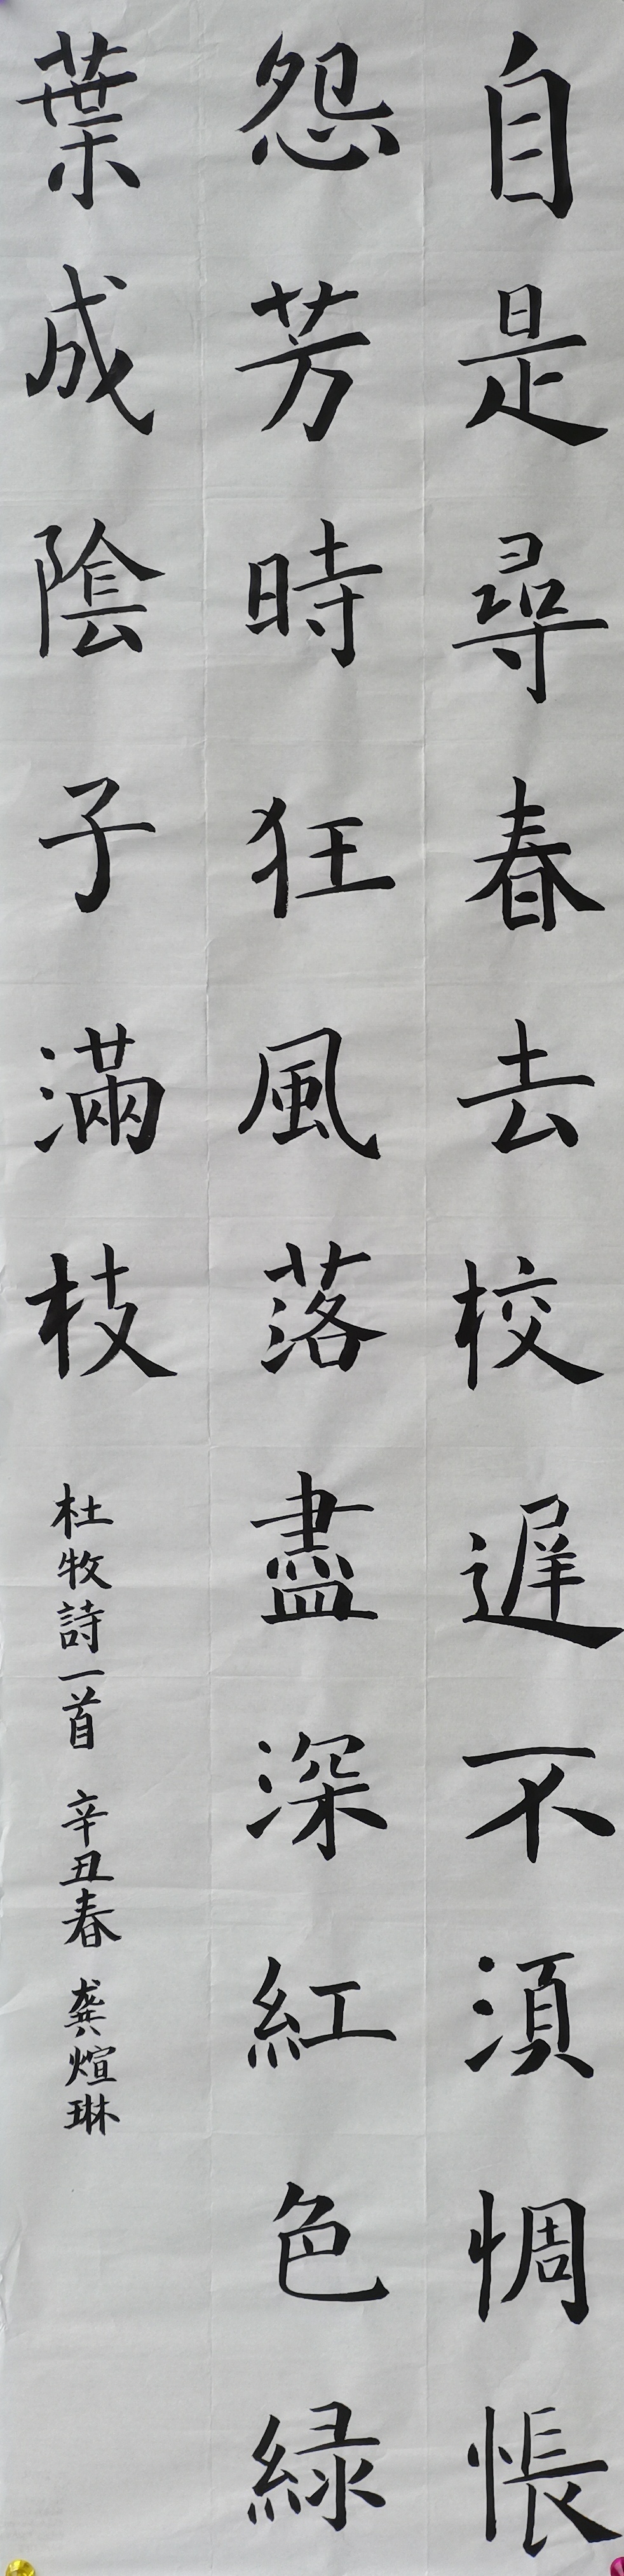 自是尋春去校遅不湏惆悵
怨芳時狂風落盡深紅色緑
葉成陰子滿枝
杜牧詩一首 辛丑春 龔煊琳